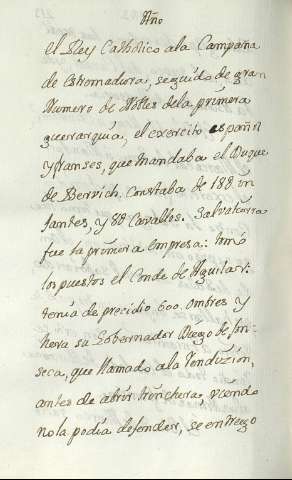 Año
el Rey Catholico ala Campaña
de Estremadura, seguido de gran
Numero de Nobles dela primera
guerarquia, el exercito español
y franses, que mandaba el Duque
de Bervich. Constaba de 188. in
fantes, y 88 Cavallos. Salvatierra
fue la primera empresa: tomó
los puestos el Conde de Aguilar:
tenia de precidio 600. ombres y
hera su Gobernador Diego de fon-
seca, que llamado ala Rendizion,
antes de abrir trincheras, viendo
no la podia defender, se entrego